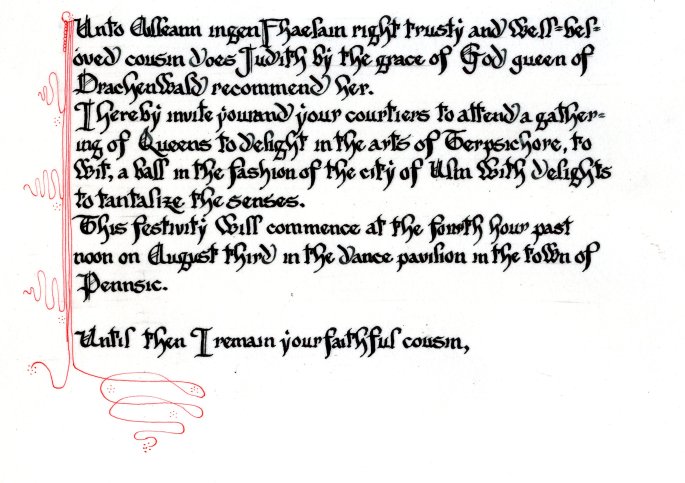 Unto Aibleann ingen Fhaelain right trusty and well=bel=
oved cousin does Judith by the grace of God queen of
Drachenwald recommend her.
I hereby invite you and your courtiers to attend a gather=
ing of Queens to delight in the arts of Terpsichore, to
wit, a ball in the fashion of the city of Ulm with delights
to tantalize the senses.
This festivity will commence at the fourth hour past
noon on August third in the dance pavilion in the town of
Pennsic.
Until then I remain your faithful cousin,